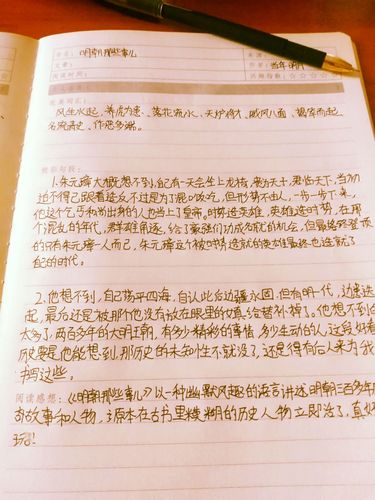 书名: 明朝那些事儿
文章:
作者: 当年明月
阅读时间:
优美词汇:
风生水起、养虎为患、落花流水、天妒将才、威风八面、揭竿而起、
名流青史、作恶多端。
精彩句段:
1. 朱元璋大概想不到,自己有一天会坐上龙椅,来为天子,君临天下,当初
迫不得已跟着造反不过是为了混口饭吃,但形势不由人,一步一步下来,
他这个乞丐和尚出身的人也当上了皇帝,时势造英雄,英雄造时势,在那
个混乱的年代,群雄角逐,给了豪强们功成名就的机会,但最终登顶
的只有朱元璋一人而已,朱元璋这个被时势造就的英雄最终也造就了
自己的时代。
2. 他想不到,自己荡平四海,自认此后边疆永固,但有明一代,边患迭
起,最后还是被那个他没有放在眼里的女真给替补掉了。他想不到的
太多了,两百多年的大明王朝,有多少精彩的事情,多少生动的人,这段
历史要是他能想到,那历史的未知性不就没了,还是得有后人来为我
书写这些。
阅读感想: 《明朝那些事儿》以一种幽默风趣的语言讲述明朝三百多年
故事和人物,原本在古书里模糊的历史人物立即活了,真
玩!